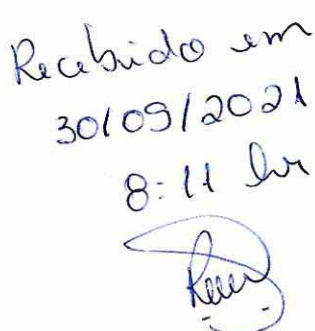 Recebido em
30/09/2021
8:11 hr